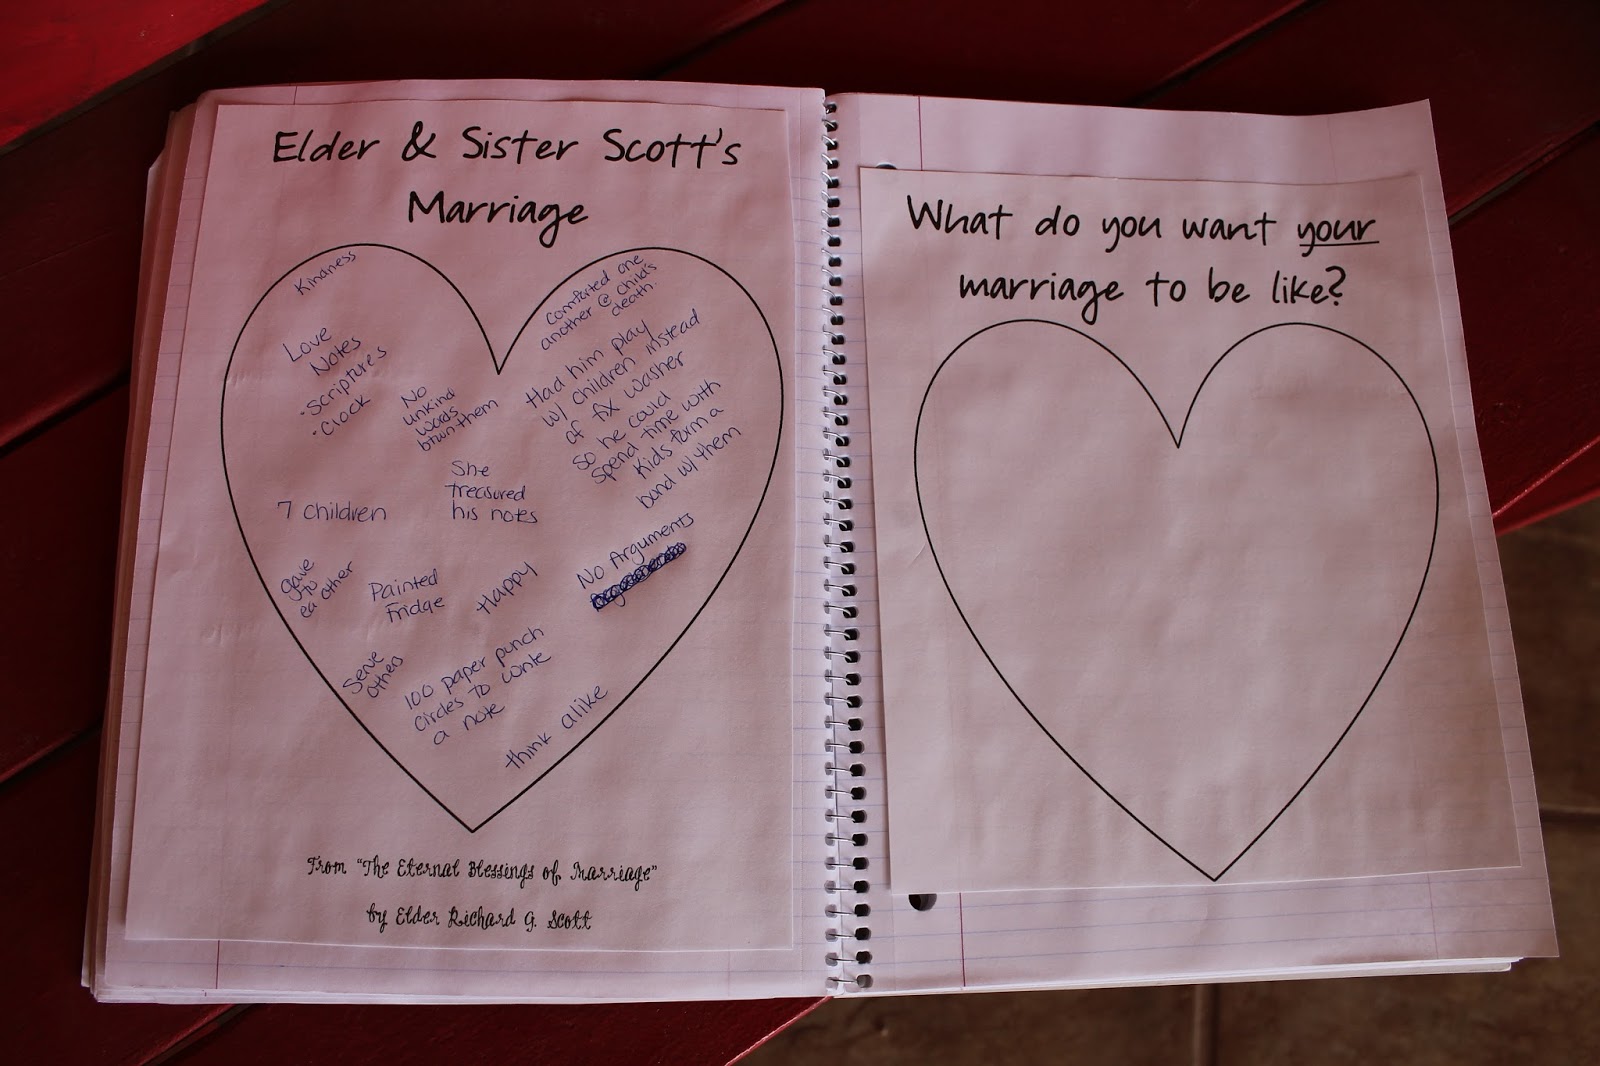 Elder & Sister Scott's
Marriage
Kindness
Love
Notes
·Scriptures
·Clock
No
unkind
words
btwn them
comforted one
another @ child's
death.
Had him play
w/ children instead
of fix washer
so he could
spend time with
kids form a
bond w/ them
She
treasured
his notes
7 children
No Arguments
gave
to
ea other
Painted
Fridge
Happy
Serve
Others
100 paper punch
circles to write
a note
think alike
From "The Eternal Blessings of Marriage"
by Elder Richard G. Scott
What do you want your
marriage to be like?